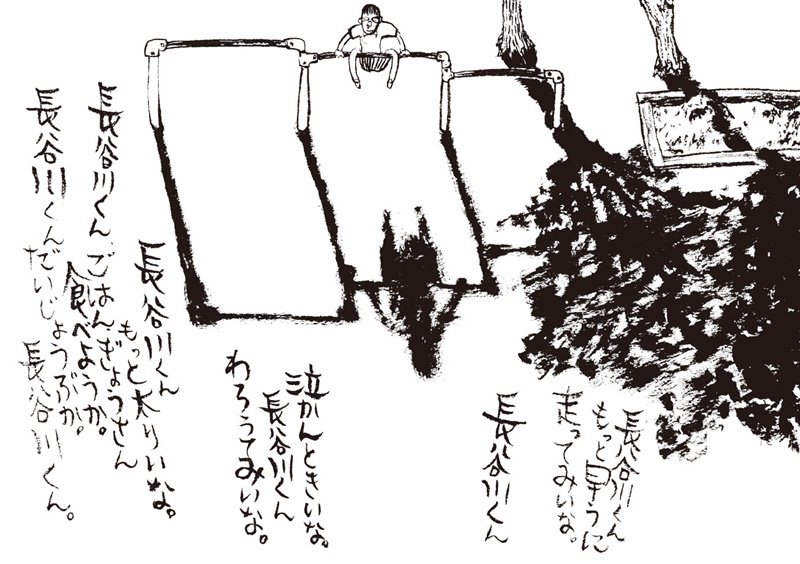 長谷川くん
もっと早うに
走ってみいな。
長谷川くん
泣かんときいな。
長谷川くん
わろうてみいな。
長谷川くん
もっと太りいな。
長谷川くん、ごはんぎょうさん
食べようか。
長谷川くんだいじょうぶか。長谷川くん。